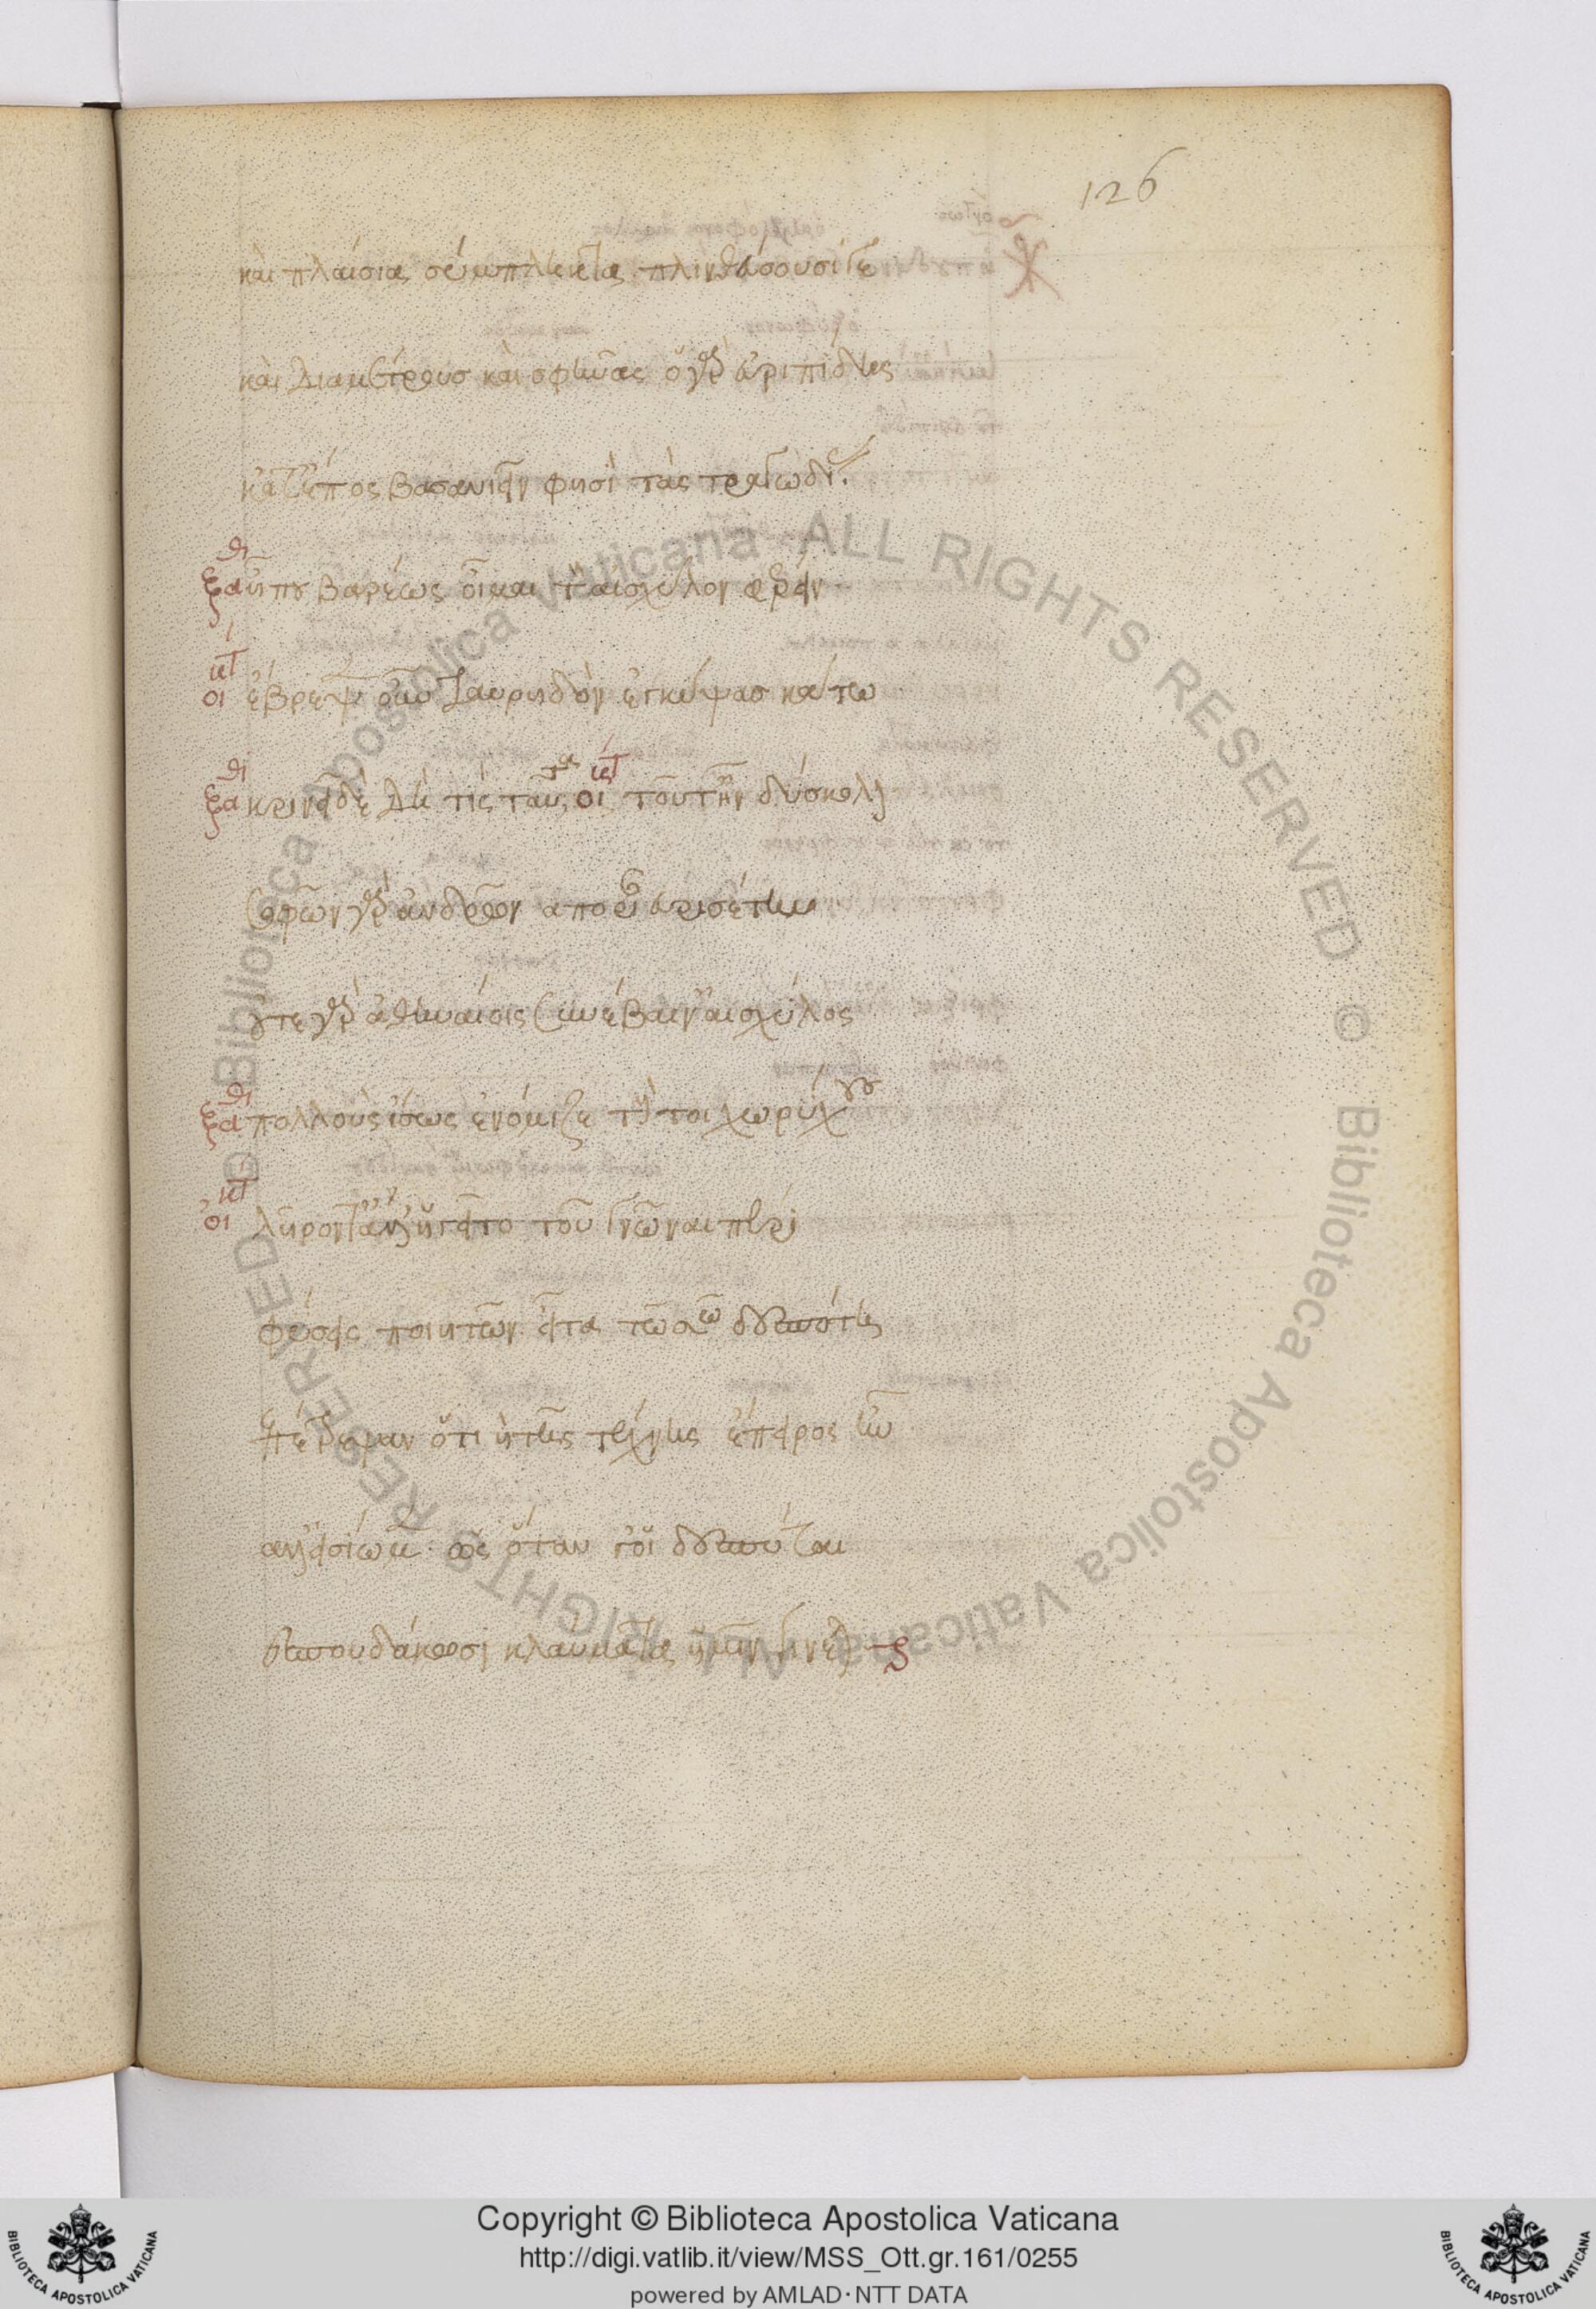 126
καὶ πλαίσια ξύμπηκτα πλινθεύσουσί γε
καὶ διαμέτρους καὶ σφῆνας ὁ γὰρ εὐριπίδης
κατ' ἔπος βασανιεῖν φησὶ τὰς τραγωδίας.
ξαθι ἦπου βαρέως οἶμαι τὸν αἰσχύλον φέρειν
οικετ ἔβλεψε γοῦν ταυρηδὸν ἐγκύψας κάτω
ξαθι κρινεῖ δὲ δὴ τίς ταῦτα οικετ τοῦτ' ἦν δύσκολον
σοφῶν γὰρ ἀνδρῶν ἀπορίαν εὑρισκέτην
οὔτε γὰρ ἀθηναίοις συνέβαιν' αἰσχύλος
ξαθι πολλοὺς ἴσως ἐνόμιζε τοὺς τοιχωρύχους
οικετ λῆρόν τ' ἄλλ' ἡγεῖτο τοῦ γνῶναι πέρι
φύσεις ποιητῶν εἶτα τῶ σῶ δεσπότη
ἐπέτρεψαν ὅτι ἡ τῆς τέχνης ἔμπειρος ἦν
ἀλλ' εἰσίωμεν ὡς ὅταν γ' οἱ δεσπόται
ἐσπουδάκωσι κλαύμαθ' ἡμῖν γίνεται
Copyright © Biblioteca Apostolica Vaticana
http://digi.vatlib.it/view/MSS_Ott.gr.161/0255
powered by AMLAD·NTT DATA
BIBLIOTECA APOSTOLICA VATICANA
BIBLIOTECA APOSTOLICA VATICANA
© Biblioteca Apostolica Vaticana ALL RIGHTS RESERVED
© Biblioteca Apostolica Vaticana ALL RIGHTS RESERVED